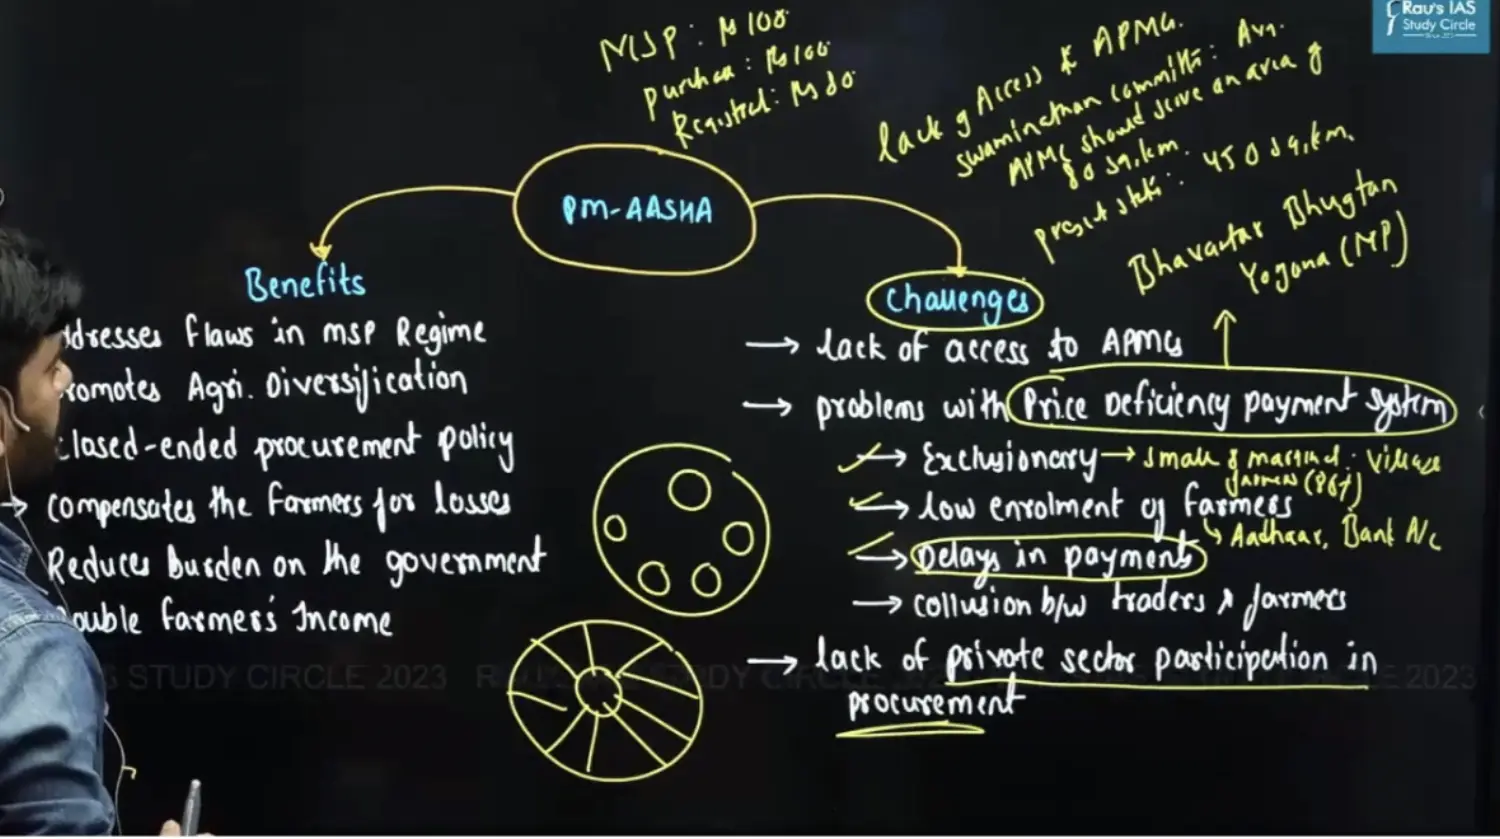 Rau's IAS
Study Circle
MSP: ₨ 100
purchase: ₨ 100
Registered: ₨ 80
lack of Access to APMCs.
swaminathan committee: Avg.
APMC should serve an area of
80 sq.km.
present status: 450 sq.km.
Bhavantar Bhugtan
Yogana (MP)
PM-AASHA
Benefits
ddresses flaws in MSP Regime
romotes Agri. Diversification
closed-ended procurement policy
→ compensates the farmers for losses
Reduces burden on the government
ouble farmer's Income
Challenges
→ lack of access to APMCs
→ problems with Price Deficiency payment system
→ Exclusionary → small & marginal : Village
farmers (86%)
→ low enrolment of farmers
↳ Aadhaar, Bank A/c
→ Delays in payments
→ collusion b/w traders & farmers
→ lack of private sector participation in
procurement
S STUDY CIRCLE 2023
2023